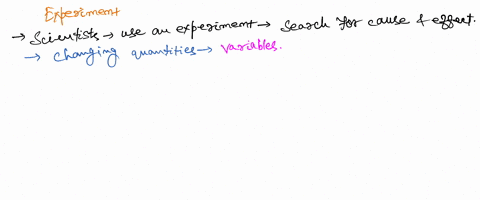 Experiment
→ Scientists → use an experiment → search for cause & effect.
→ Changing quantities → variables.